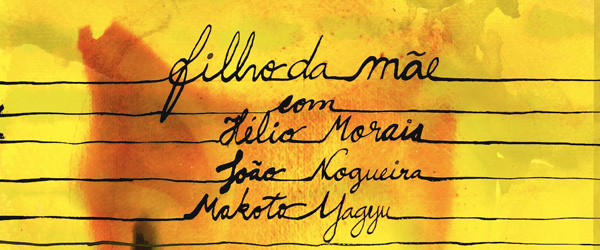 filho da mãe
com
Hélio Morais
João Nogueira
Makoto Yagyu